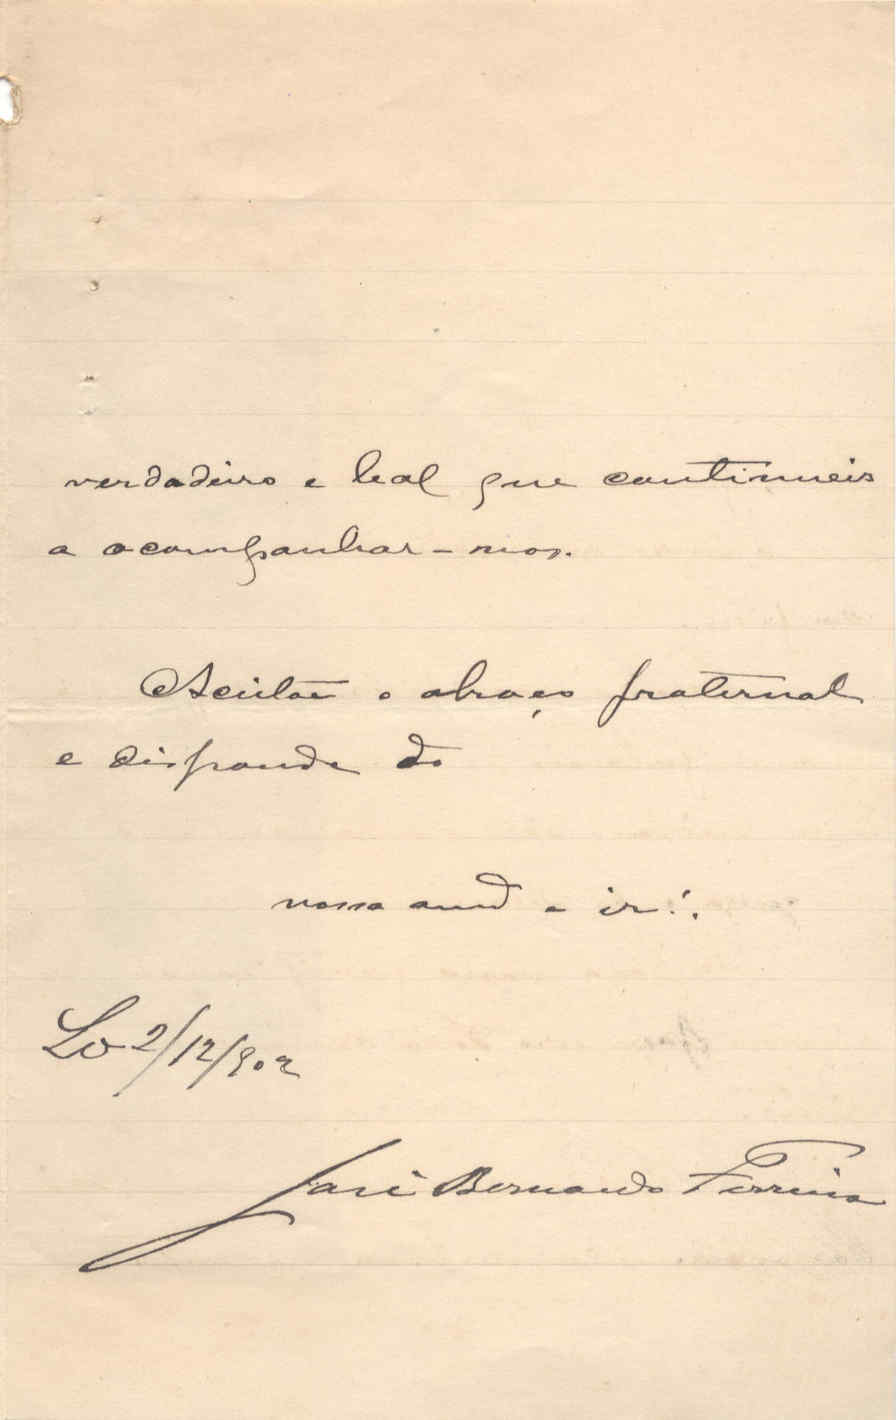 verdadeiro e leal que continueis
a acompanhar-nos.
Aceitae o abraço fraternal
e disponde do
vosso amº e ir∴
Lx 2/12/902
José Bernardo Ferreira